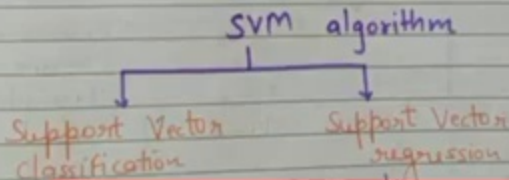 SVM algorithm
Support Vector
classification
Support Vector
regression